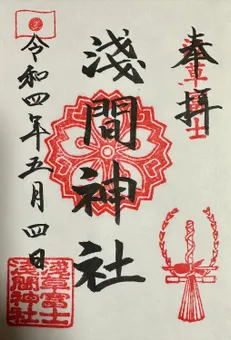 奉拝
浅草富士
淺間神社
令和四年五月四日
浅草富士
浅間神社